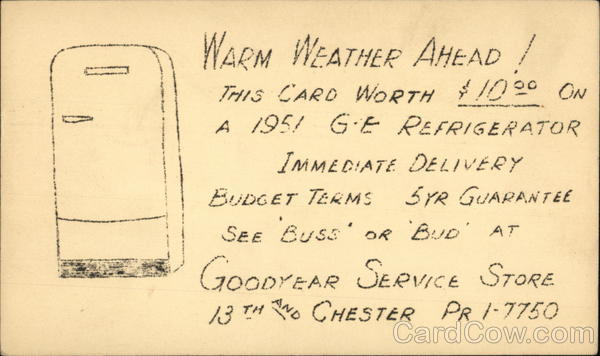 WARM WEATHER AHEAD!
THIS CARD WORTH $10.00 ON
A 1951 G-E REFRIGERATOR
IMMEDIATE DELIVERY
BUDGET TERMS 5YR GUARANTEE
SEE 'BUSS' OR 'BUD' AT
GOODYEAR SERVICE STORE
13TH AND CHESTER PR 1-7750
CardCow.com